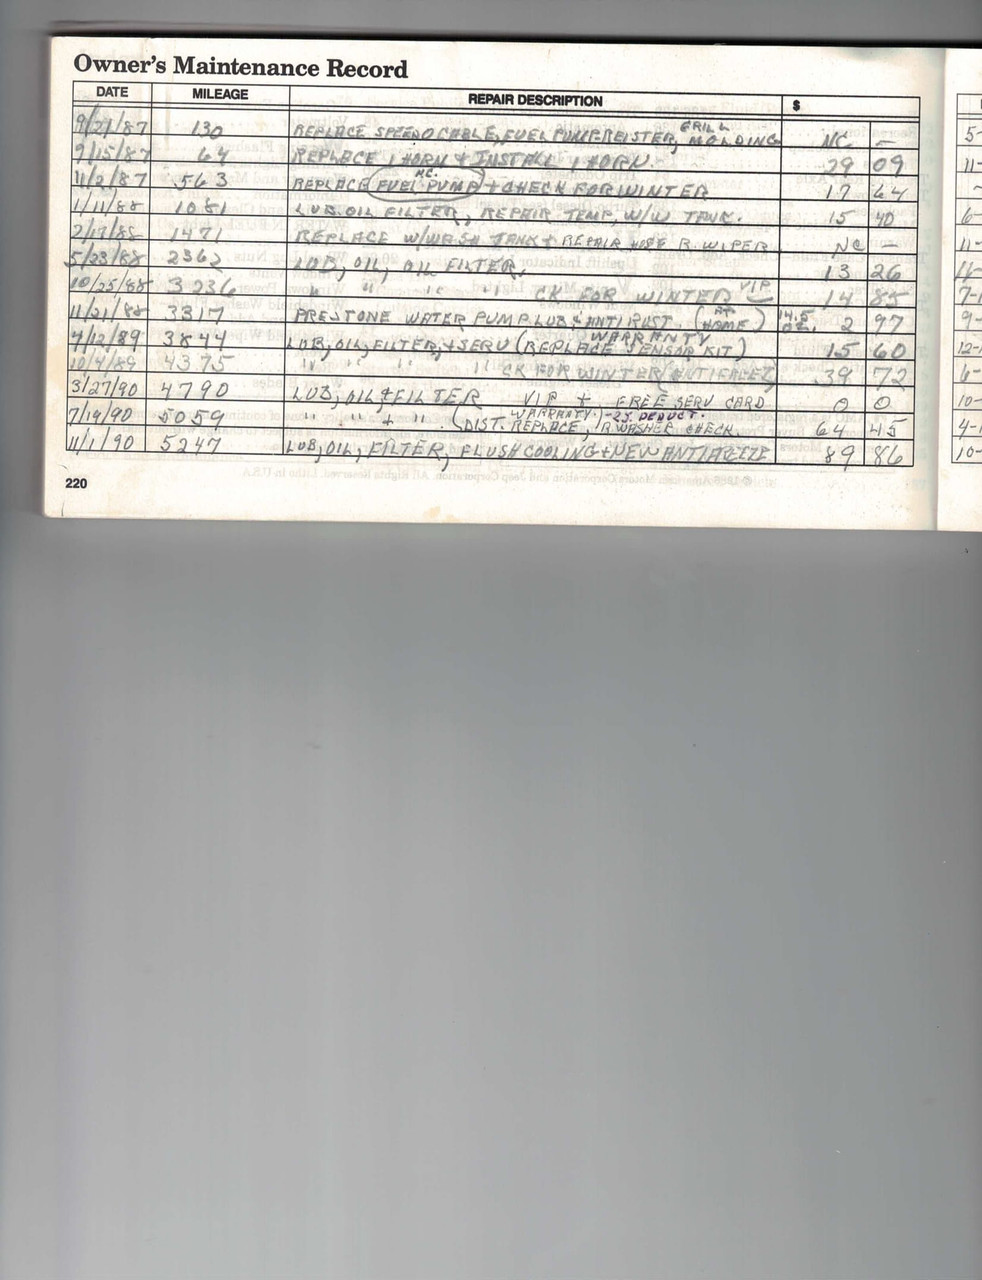 Owner's Maintenance Record
DATE MILEAGE REPAIR DESCRIPTION $
GRILL
9/21/87 130 REPLACE SPEEDO CABLE, FUEL PUMP, REISTER, MOLDING NC –
9/15/87 64 REPLACE 1 HORN + INSTALL 1 HORN 29 09
NC.
11/2/87 563 REPLACE FUEL PUMP + CHECK FOR WINTER 17 64
1/11/88 1081 LUB. OIL FILTER, REPAIR TEMP, W/W TANK. 15 40
2/17/88 1471 REPLACE W/WASH TANK + REPAIR HOSE R. WIPER NC –
5/23/88 2362 LUB, OIL, OIL FILTER, 13 26
10/25/88 3236 " " " " CK FOR WINTER VIP 14 85
11/21/88 3317 PRESTONE WATER PUMP LUB & ANTI RUST. (AT HOME) 14.5 OZ. 2 97
WARRANTY
7/12/89 3844 LUB, OIL, FILTER, + SERV (REPLACE SENSOR KIT) 15 60
10/4/89 4375 " " " " CK FOR WINTER (ANTIFREEZ) 39 72
3/27/90 4790 LUB, OIL + FILTER VIP + FREE SERV CARD 0 0
WARRANTY. -25 DEDUCT.
7/19/90 5059 " " + " (DIST. REPLACE, R WASHER CHECK. 64 45
11/1/90 5247 LUB, OIL, FILTER, FLUSH COOLING + NEW ANTIFREEZE 89 86
220